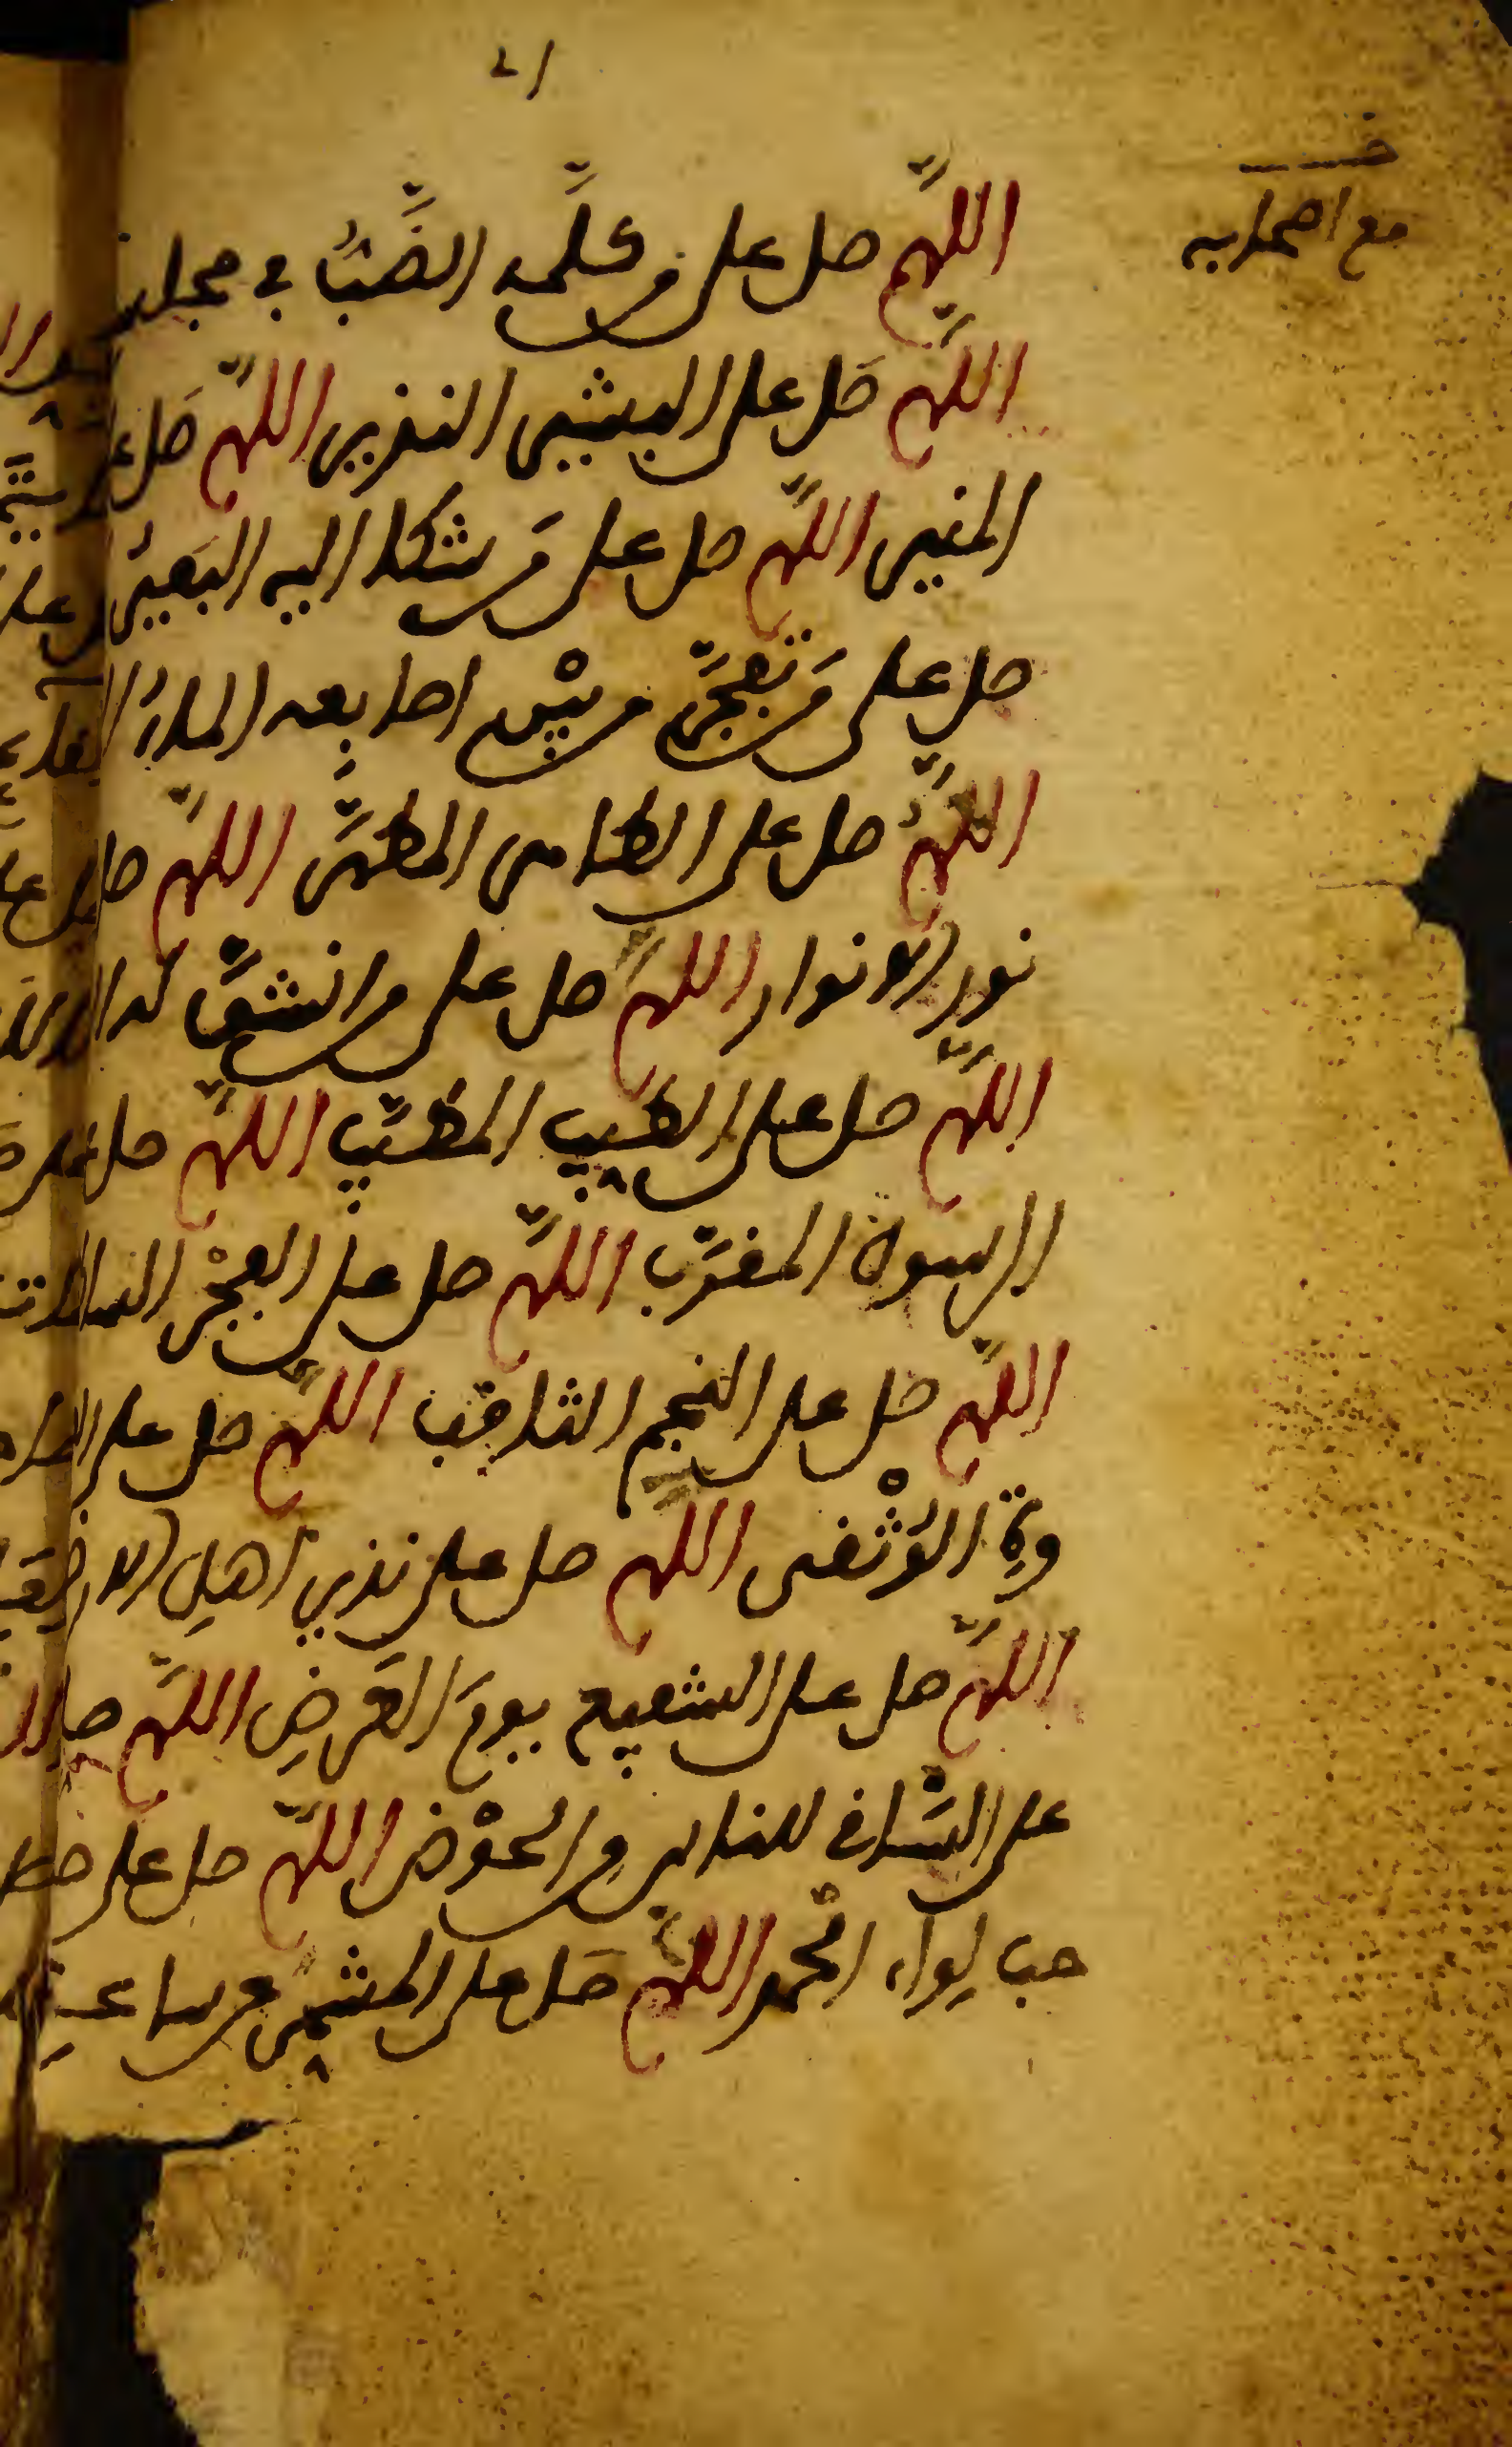 خـ
مع اصحابه
اللهم صل على من كلمه الضب في مجلسه
اللهم صل على البشير النذير اللهم صل على
المنير اللهم صل على من شكا اليه البعير
صل على من تفجر من بين اصابعه الماء
اللهم صل على الطاهر المطهر اللهم صل على
نور الانوار اللهم صل على من انشق له
اللهم صل على الطيب المطيب اللهم صل على
الرسول المقرب اللهم صل على الفجر الساطع
اللهم صل على النجم الثاقب اللهم صل على العر
وة الوثقى اللهم صل على نذير اهل الارض
اللهم صل على الشفيع يوم العرض اللهم صل
على الساقي للناس من الحوض اللهم صل على صا
حب لواء الحمد اللهم صل على المشمر عن ساعد